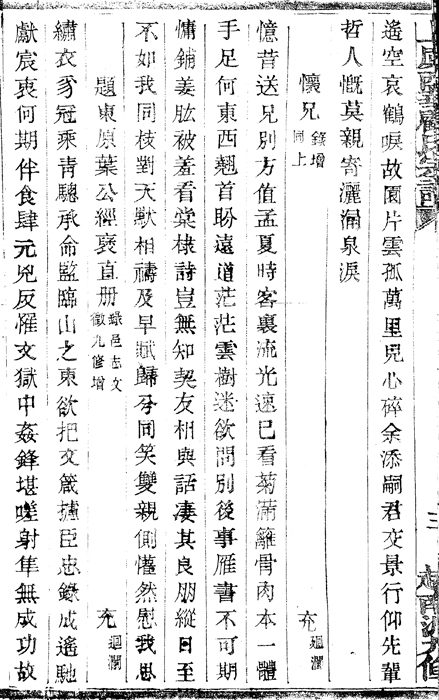 遙空哀鶴唳故園片雲孤萬里兒心碎余添嗣君交景行仰先輩
哲人慨莫親寄灑涸泉淚
懷兄 錄增同上 充 廻瀾
憶昔送兄別方值孟夏時客裏流光速已看菊滿籬骨肉本一體
手足何東西翹首盼遠道茫茫雲樹迷欲問別後事雁書不可期
慵鋪姜肱被羞看棠棣詩豈無知契友相與話凄其良朋縱日至
不如我同枝對天默相禱及早賦歸兮同笑雙親側懽然慰我思
題東原葉公經褒直册 錄邑志文徵九修增 充 廻瀾
繡衣豸冠乘青驄承命監臨山之東欲把文箴攄臣忠錄成遙馳
獻宸衷何期伴食肆元兇反罹文獄中姦鋒堪嗟射隼無成功故
三